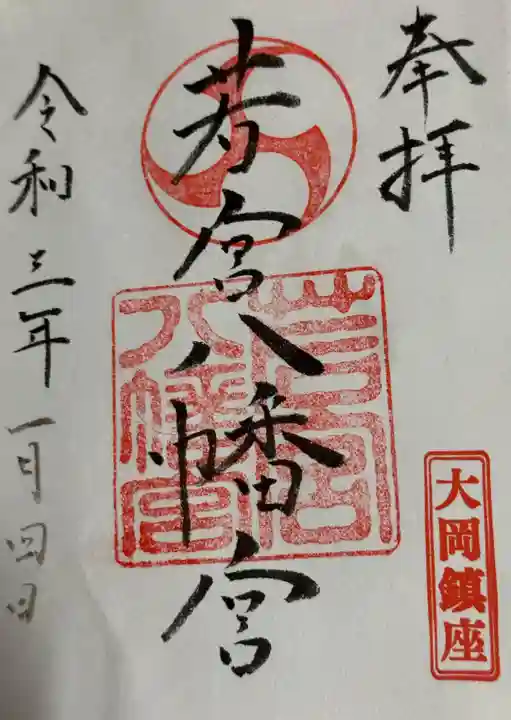 奉拝
大岡鎮座
若宮八幡宮
若宮
八幡宮
令和三年一月四日